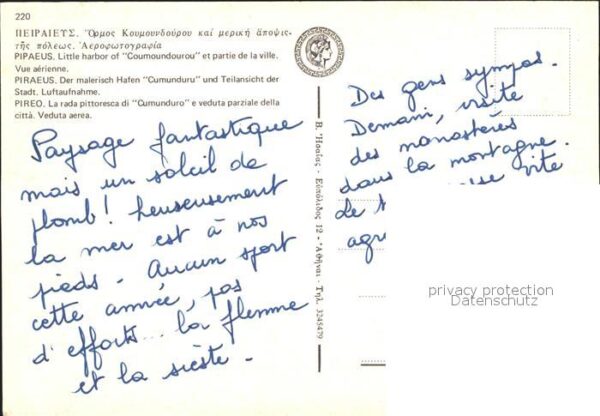 220
ΠΕΙΡΑΙΕΤΣ. Ὅρμος Κουμουνδούρου καί μερική ἄποψις-
τῆς πόλεως. Ἀεροφωτογραφία
PIPAEUS. Little harbor of "Coumoundourou" et partie de la ville.
Vue aérienne.
PIRAEUS. Der malerisch Hafen "Cumunduru" und Teilansicht der
Stadt, Luftaufnahme.
PIREO. La rada pittoresca di "Cumunduro" e veduta parziale della
città. Veduta aerea.
Paysage fantastique
mais un soleil de
plomb! heureusement
la mer est à nos
pieds. Aucun sport
cette année, pas
d'efforts... la flemme
et la sièste.
Β. Ἡσαΐας - Εὐπόλιδος 12 - Ἀθῆναι - Τηλ. 3245479
Des gens sympas.
Demain, visite
des monastères
dans la montagne.
Le
vite
agré
privacy protection
Datenschutz